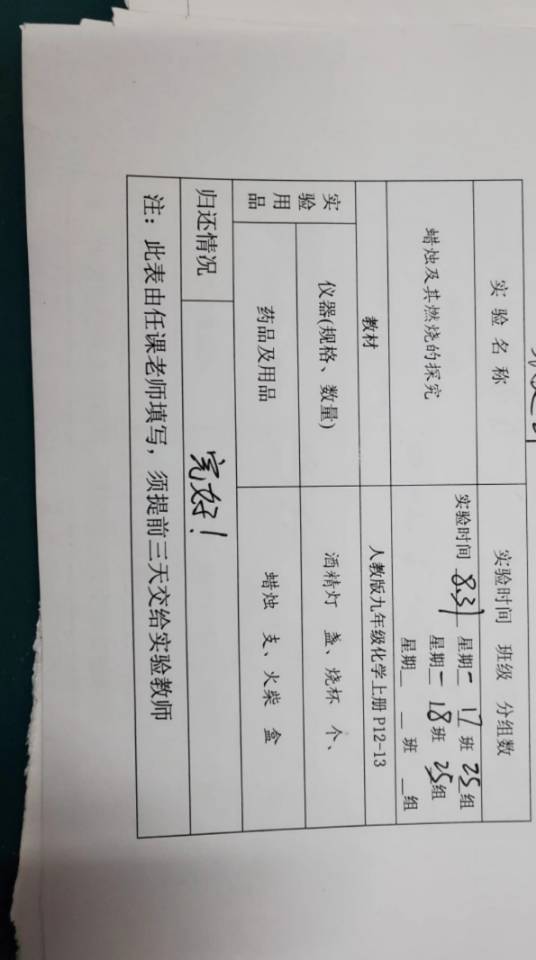 实验名称 实验时间 班级 分组数
蜡烛及其燃烧的探究
实验时间 8.31 星期一 17班 25组
星期一 18班 25组
星期_ _班 _组
教材 人教版九年级化学上册 P12-13
实验用品
仪器(规格、数量) 酒精灯 盏、烧杯 个、
药品及用品 蜡烛 支、火柴 盒
归还情况 完好!
注：此表由任课老师填写，须提前三天交给实验教师